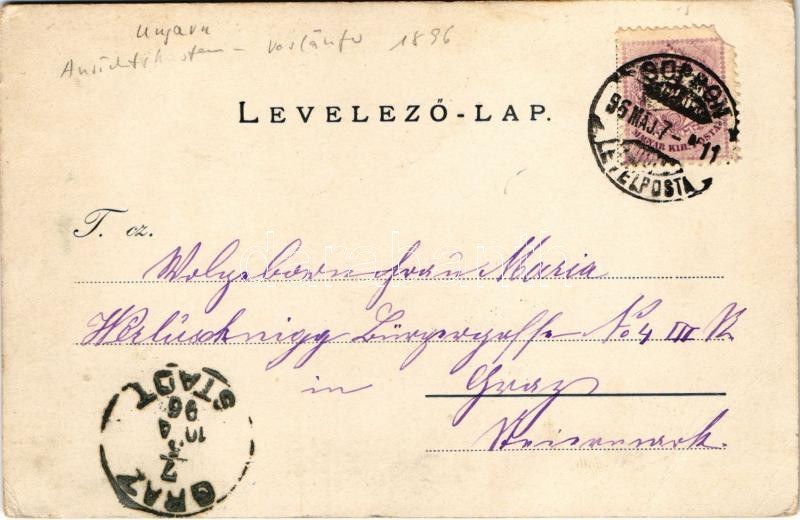 Ungarn
Ansichtskarten - Vorläufer 1896
LEVELEZŐ-LAP.
SOPRON
96 MÁJ. 7 - 11
LEVÉLPOSTA
MAGYAR KIR. POSTA
T. cz.
Wolgeborn Frau Maria
Werluschnigg Bürgergasse No 4 III St
in Graz
Steiermark.
GRAZ
STADT
96